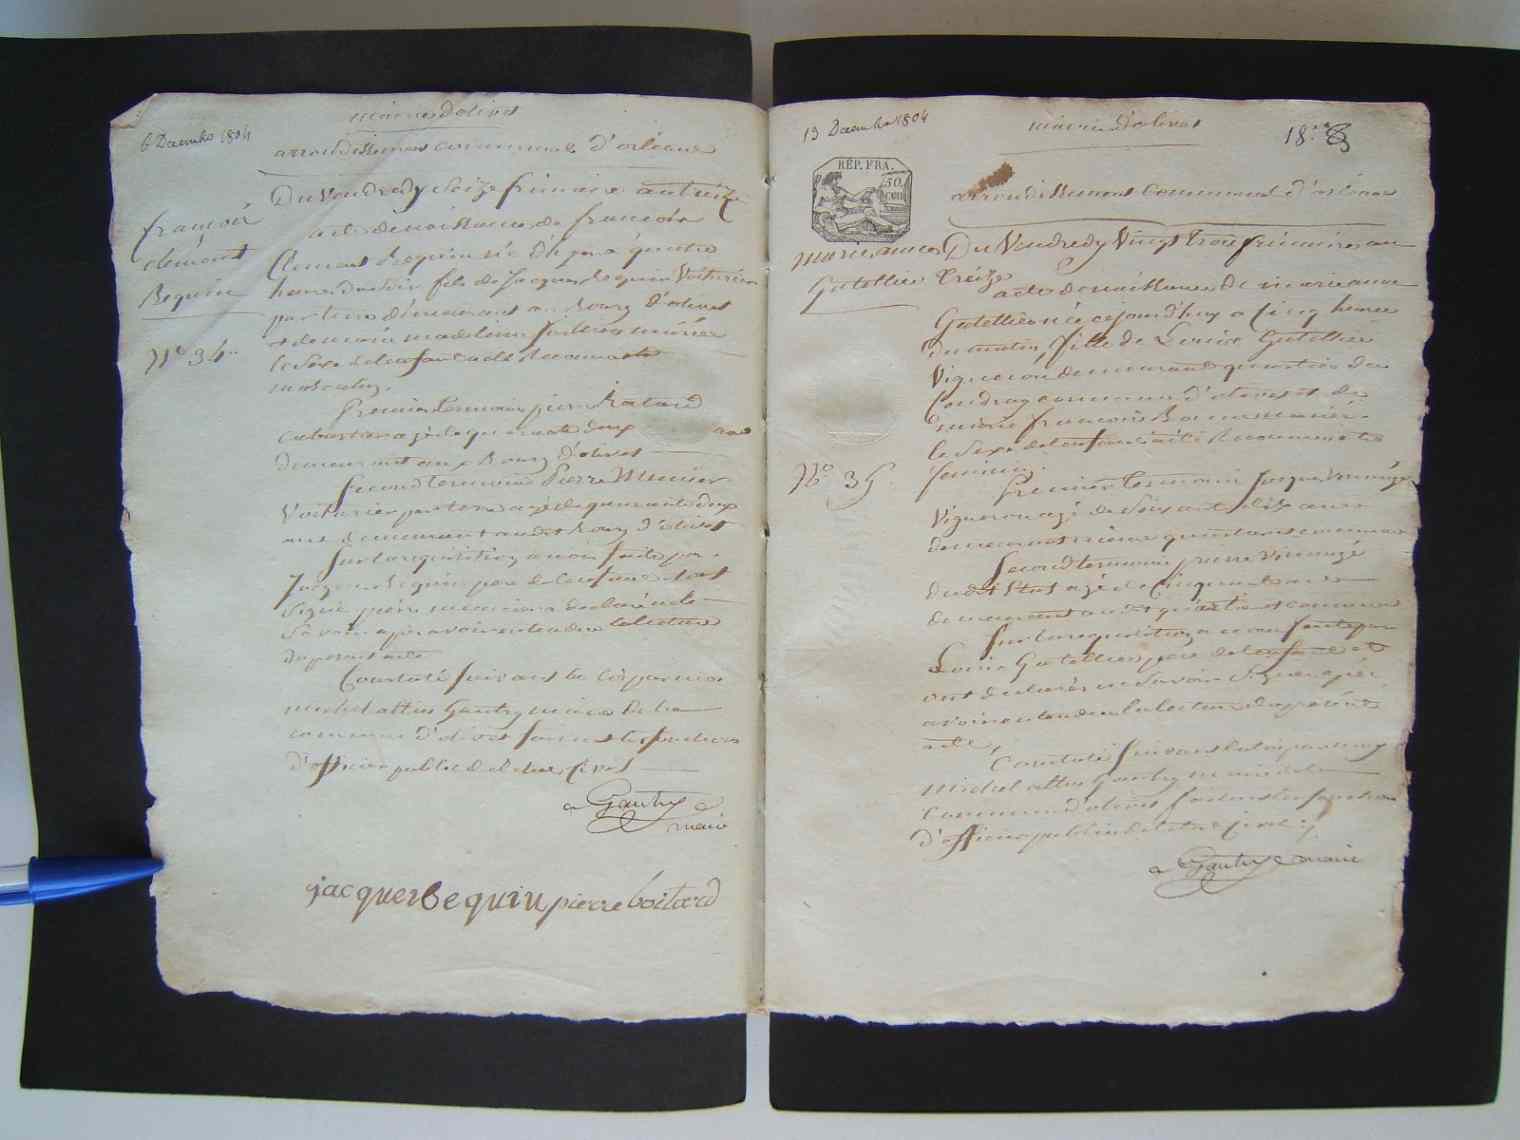 mairie d'olivet
6 Decembre 1804
arrondissement communal d'orléans
Du Vendredy Seize frimaire an treize
françois
clément
Bequin
N.o 34
acte de naissance de françois
Clement Bequin né d'hyer a quatre
heures du soir fils de Jacques Bequin Voiturier
par terre demeurant au Bourg d'olivet
et de marie madeleine
le Sexe de l'enfant a été Reconnu etre
masculin.
Premier temoin pierre
agé de quarante deux ans
demeurant aux Bourg d'olivet
Second temoin Pierre Meunier
Voiturier par terre agé de quarante deux
ans demeurant audit Bourg d'olivet
Sur la requisition a nous faite par
Jacques Bequin pere de l'enfant et ont
Signé pierre meunier a declaré ne le
Savoir apres avoir entendu la lecture
du present acte
Constaté Suivant la loi par moi
michel altin Gautry maire de la
commune d'olivet faisant les fonctions
d'officier public de l'etat Civil
a Gautry
maire
jacques Bequin pierre boitard
13 Decembre 1804
mairie d'olivet
18.me
RÉP. FRA.
50.
CEN
arrondissement Communal d'orléans
marie anne
Gutellier
N.o 35
Du Vendredy Vingt trois frimaire an
treize
acte de naissance de marie anne
Gutellier née ce jourd'huy a Cinq heures
du matin, fille de Louis Gutellier
Vigneron demeurant quartier du
Coudray commune d'olivet et de
marie françoise
le Sexe de l'enfant a été Reconnu etre
feminin.
Premier temoin Jacques
Vigneron agé de Soixante dix ans
demeurant meme quartier et commune
Second temoin pierre
dudit Etat agé de Cinquante ans
demeurant audit quartier et commune
Sur la requisition a nous faite par
Louis Gutellier pere de l'enfant et
ont declarés ne Savoir Signer apres
avoir entendu la lecture du présent
acte,
Constaté Suivant la loi par moy
michel altin Gautry maire de la
Commune d'olivet faisant les fonctions
d'officier public de l'etat Civil
a Gautry maire